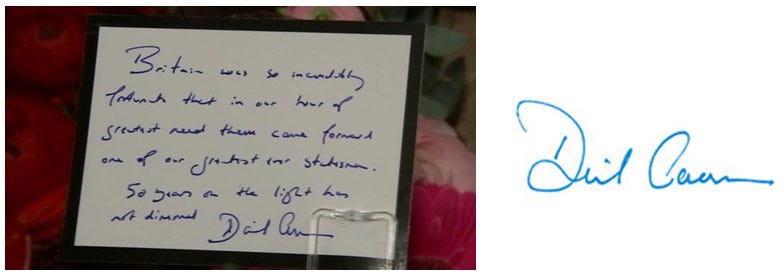 Britain was so incredibly
fortunate that in our hour of
greatest need there came forward
one of our greatest ever statesmen.
50 years on the light has
not dimmed David Cameron
David Cameron